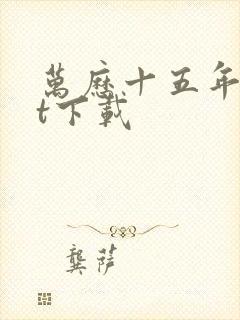 萬歷十五年
t下載
龔萨